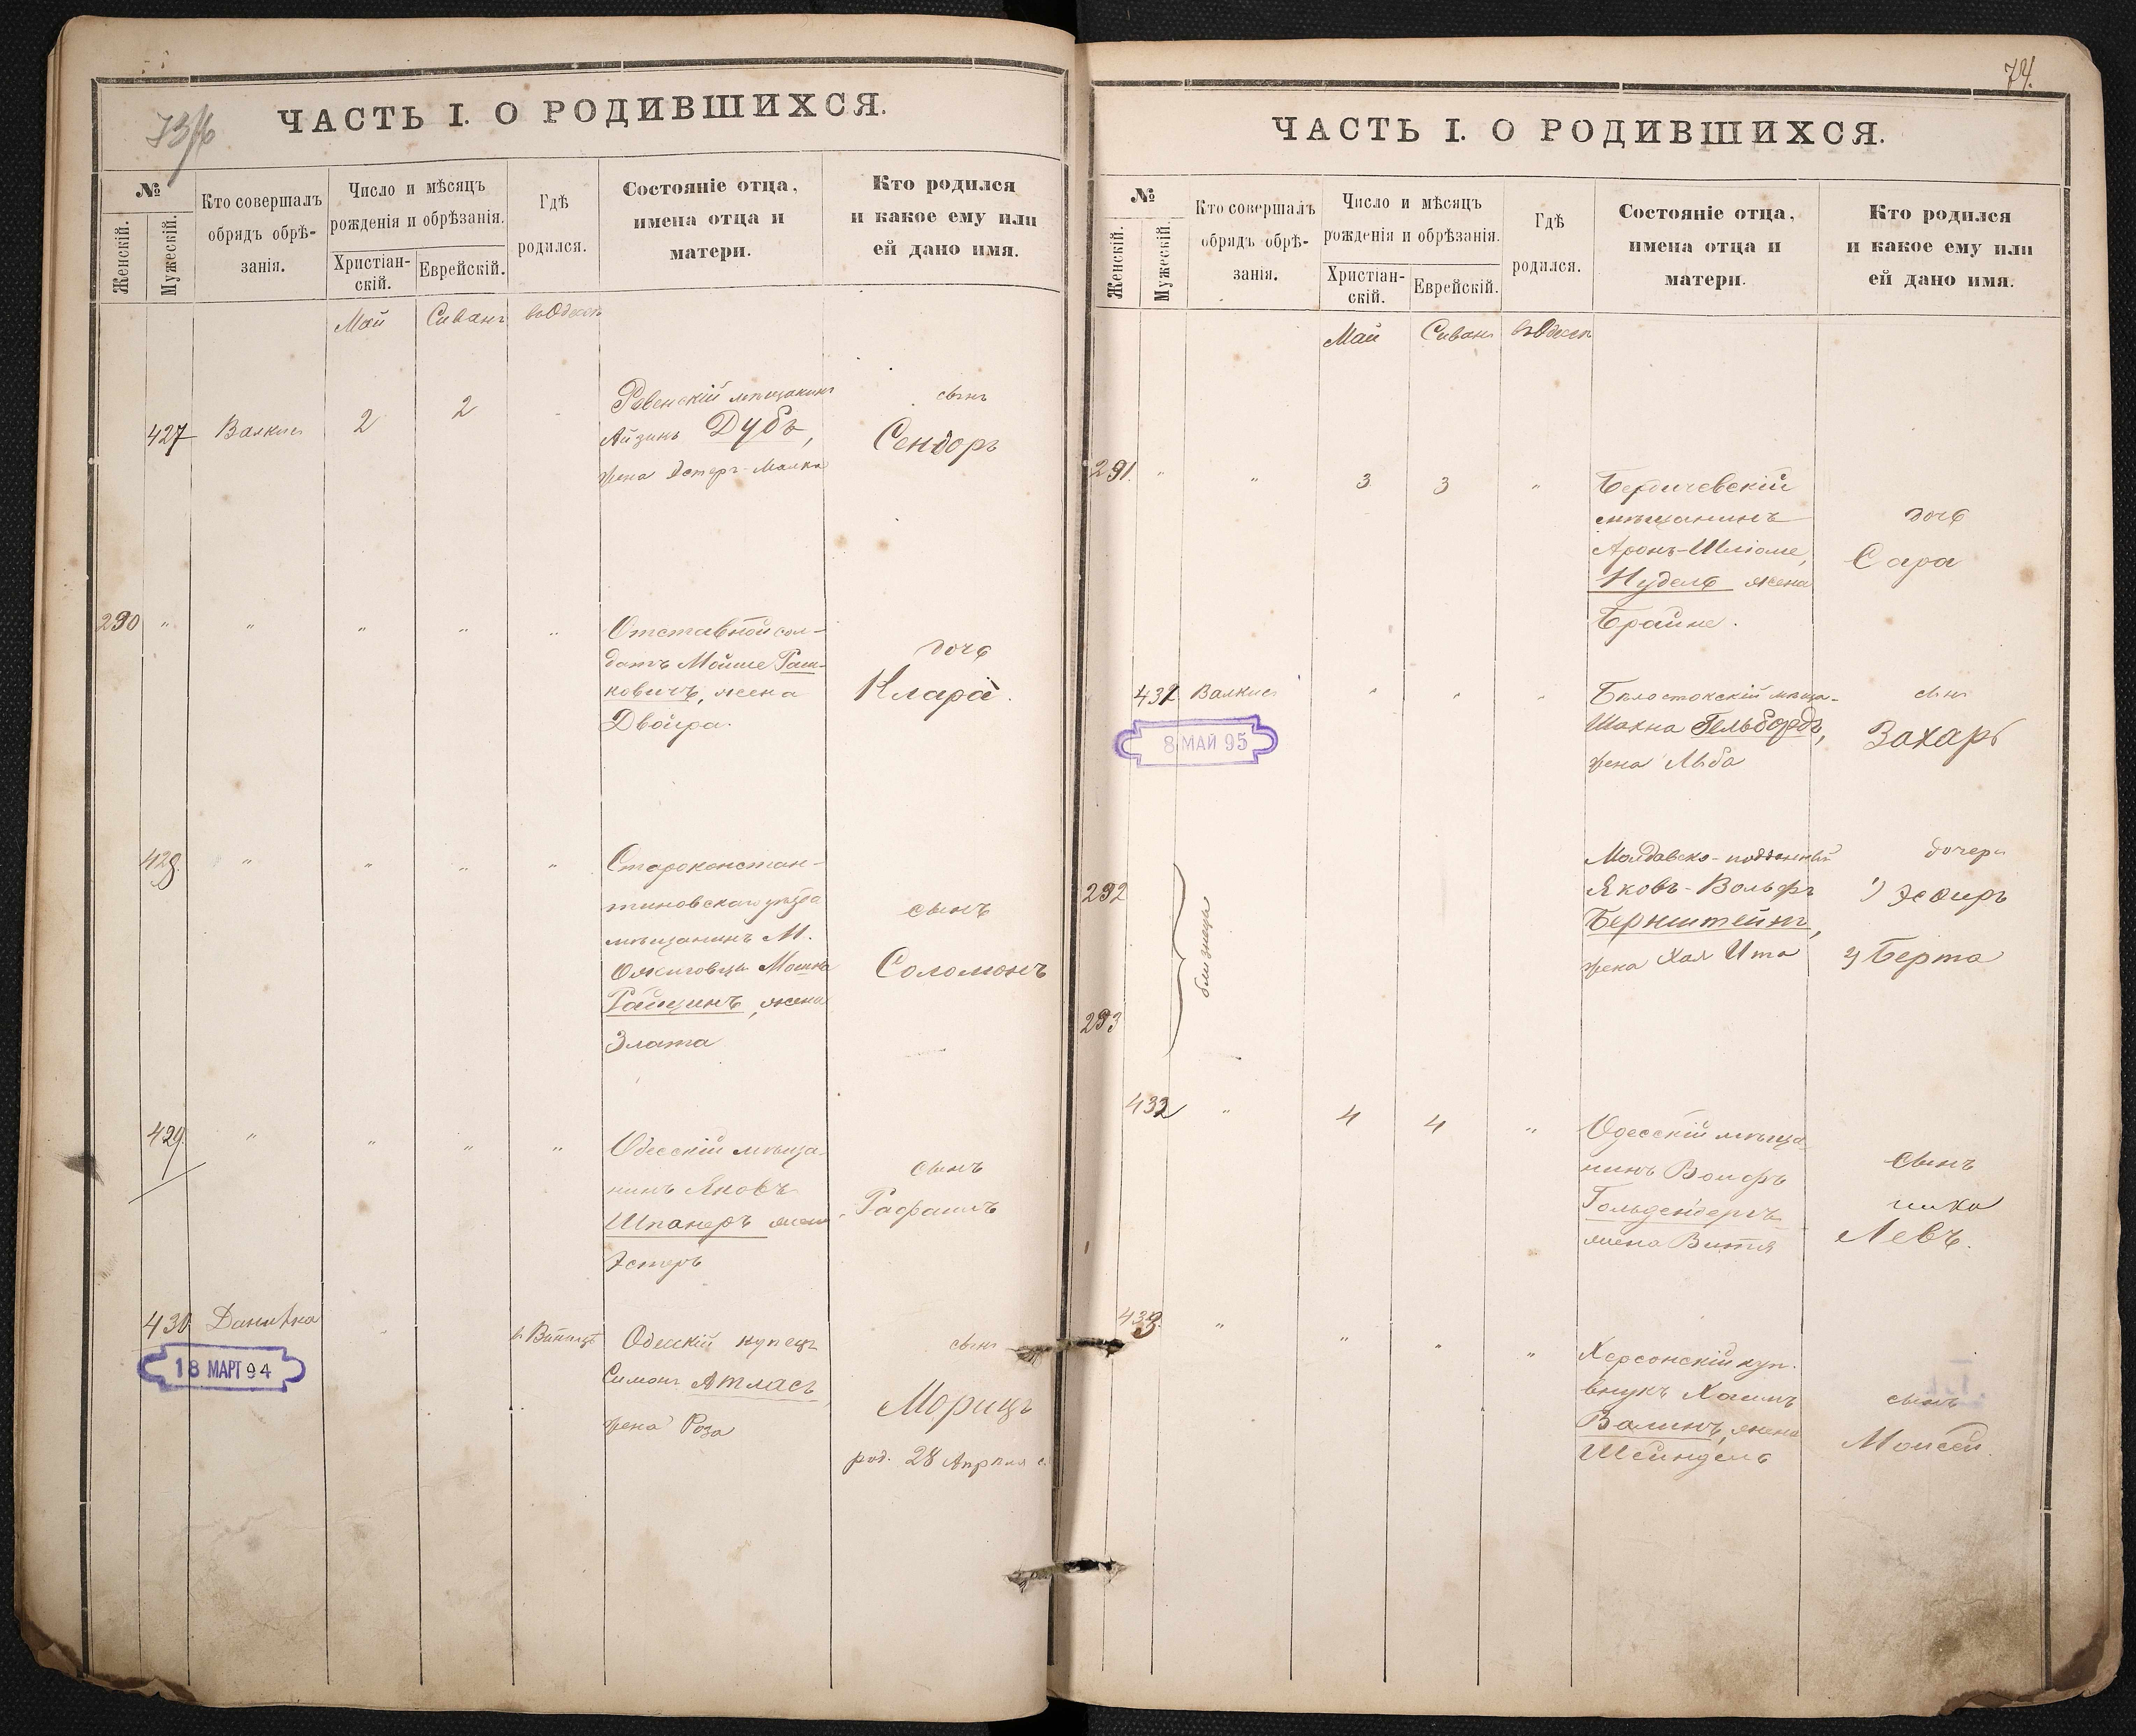 73/16
ЧАСТЬ I. О РОДИВШИХСЯ.
№
Женскій.
Мужескій.
Кто совершалъ
обрядъ обрѣ-
занія.
Число и мѣсяцъ
рожденія и обрѣзанія.
Христіан-
скій.
Еврейскій.
Гдѣ
родился.
Состояніе отца,
имена отца и
матери.
Кто родился
и какое ему или
ей дано имя.
Май Сиванъ въ Одессѣ
427 Валкис 2 2
Ровенскій мѣщанинъ
Айзикъ Дубъ,
жена Эстеръ-Малка
сынъ
Сендоръ
290 " " " " "
Отставной сол-
датъ Мойше Раш-
ковичъ, жена
Двойра.
дочь
Клара.
428. " " " "
Староконстан-
тиновскаго уѣзда
мѣщанинъ М.
Ожиговцы Мошка
Райцинъ, жена
Злата
сынъ
Соломонъ
429. " " " "
Одесскій мѣща-
нинъ Яковъ
Шпанеръ жена
Эстеръ
сынъ
Рафаилъ
430
18 МАРТ 94
Одесскій купецъ
Симонъ Атласъ,
жена Роза
сынъ
Морицъ
род. 28 Апрѣля с.
74.
ЧАСТЬ I. О РОДИВШИХСЯ.
№
Женскій.
Мужескій.
Кто совершалъ
обрядъ обрѣ-
занія.
Число и мѣсяцъ
рожденія и обрѣзанія.
Христіан-
скій.
Еврейскій.
Гдѣ
родился.
Состояніе отца,
имена отца и
матери.
Кто родился
и какое ему или
ей дано имя.
Май Сиванъ въ Одессѣ
291. " " 3 3 "
Бердичевскій
мѣщанинъ
Аронъ-Шлiоме,
Нудель жена
Брайне.
дочь
Сара
431 Валкис " " "
8 МАЙ 95
Бѣлостокскій мѣща-
Шахна Гельбордъ,
жена Либа
сынъ
Захарь
292
293
близнецы
Молдавско-подданный
Яковъ-Вольфъ
Бернштейнъ,
жена Хая Ита
дочери
1) Эсѳирь
2) Берта
432 " 4 4 "
Одесскій мѣща-
нинъ Вольфъ
жена Витя
сынъ
Левъ.
433. " " " "
Херсонскій куп.
внукъ Хаимъ
Валинъ, жена
Шейндель
сынъ
Моисей.